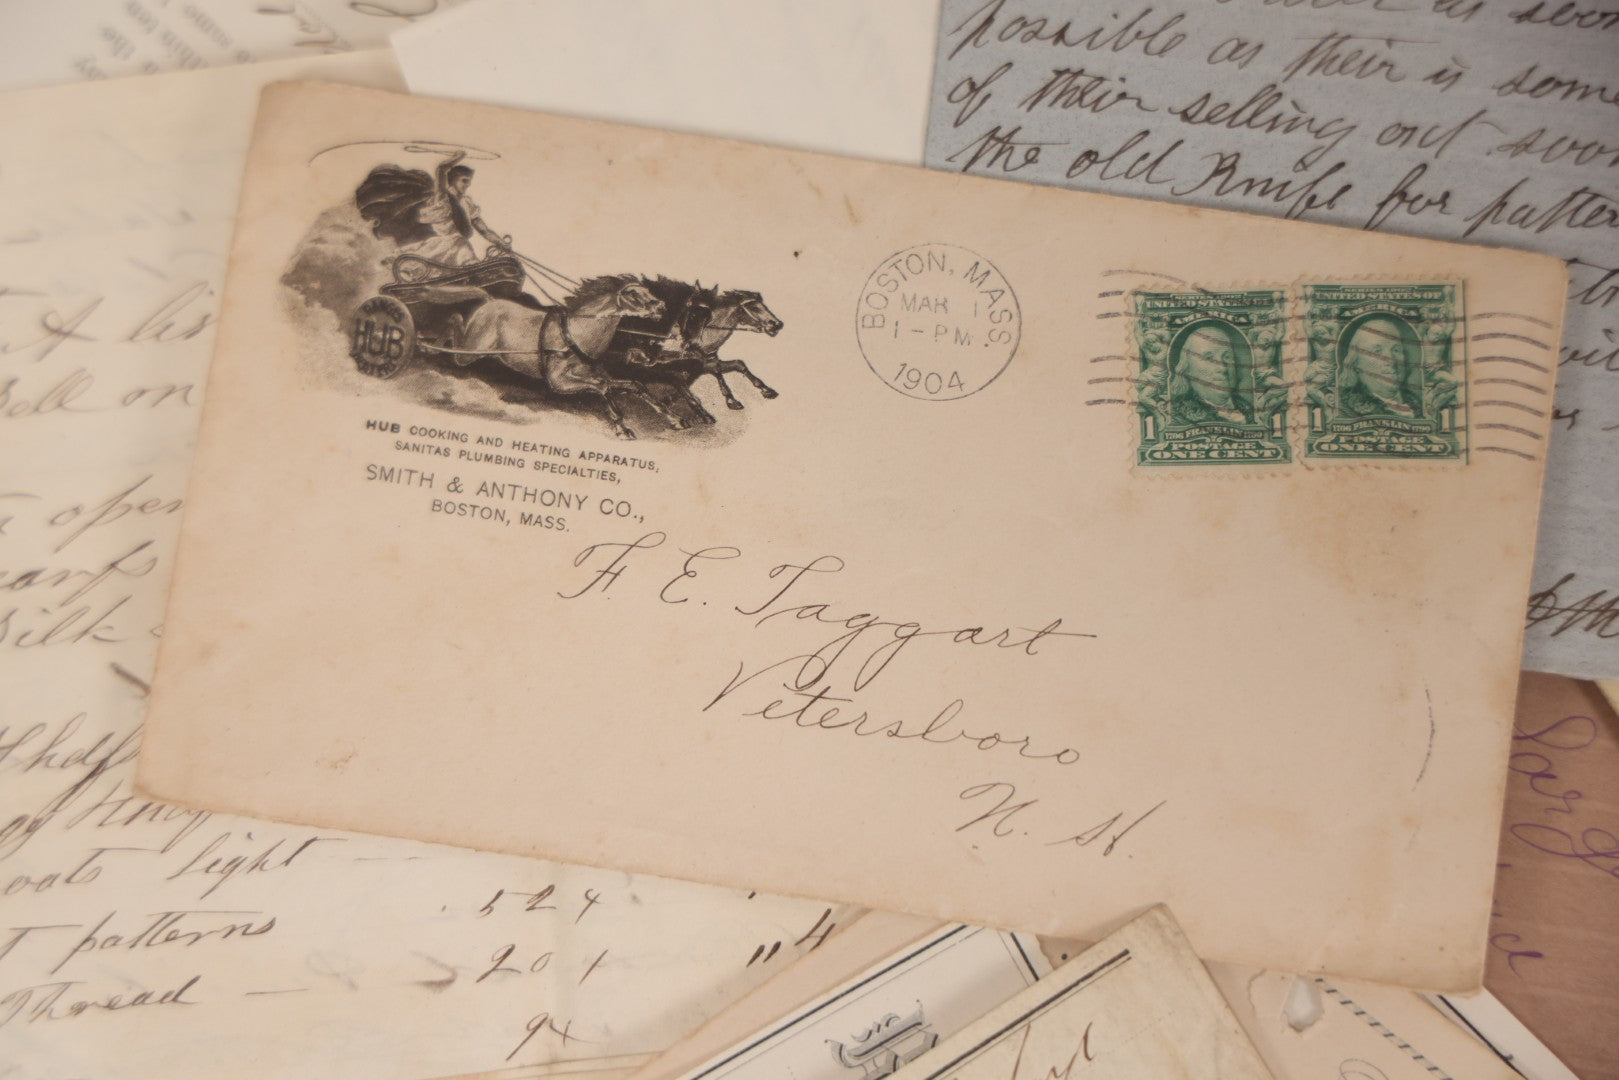 possible as their is some
of their selling out soon
the old Knife for patter
HUB
HUB COOKING AND HEATING APPARATUS,
SANITAS PLUMBING SPECIALTIES,
SMITH & ANTHONY CO.,
BOSTON, MASS.
BOSTON, MASS.
MAR 1
1 - PM
1904
SERIES 1902
UNITED STATES OF
AMERICA
1 1706 FRANKLIN 1790 1
POSTAGE
ONE CENT
SERIES 1902
UNITED STATES OF
AMERICA
1 1706 FRANKLIN 1790 1
POSTAGE
ONE CENT
F. E. Taggart
Petersboro
N. H.
A lis
Sell on
open
Silk
oats light
524
patterns
201
Thread
94